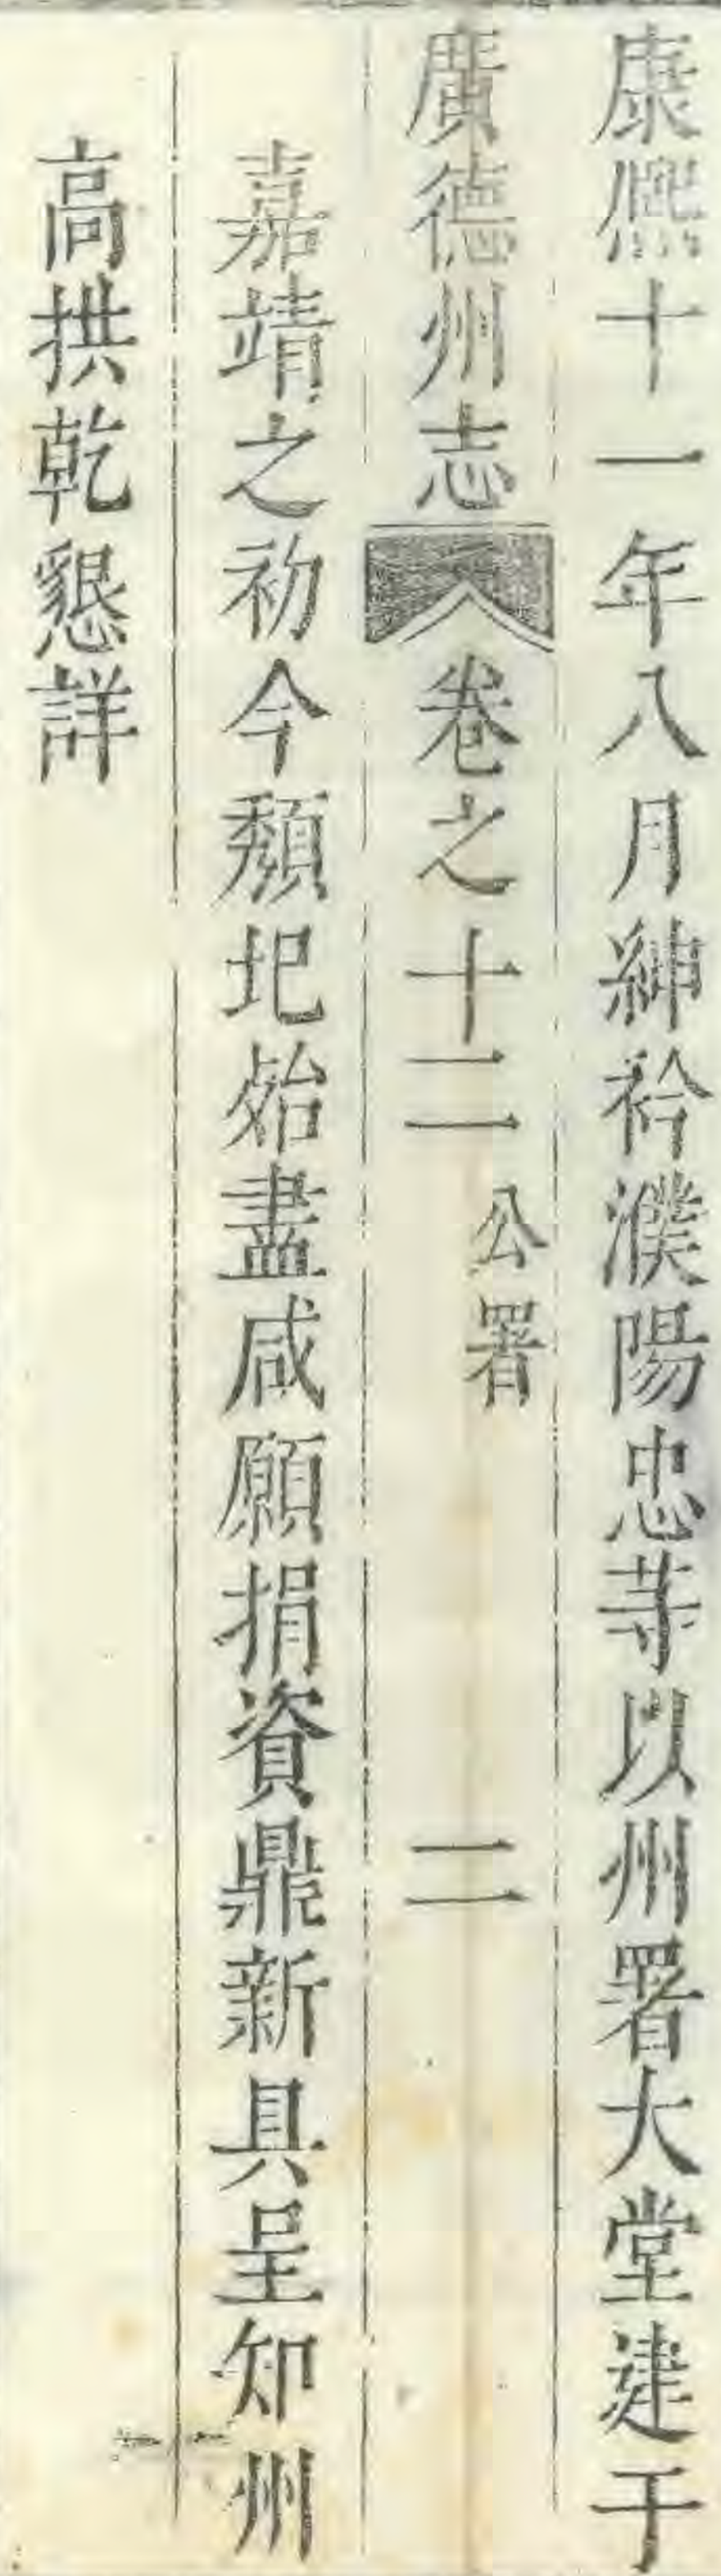 康熙十一年八月紳衿濮陽忠等以州署大堂建于
廣德州志 卷之十二 公署 二
嘉靖之初今頽圮殆盡咸願捐資鼎新具呈知州
高拱乾懇詳